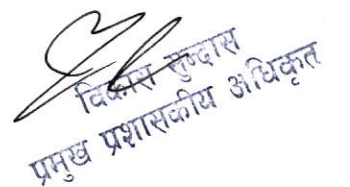 विकास सुन्दास
प्रमुख प्रशासकीय अधिकृत